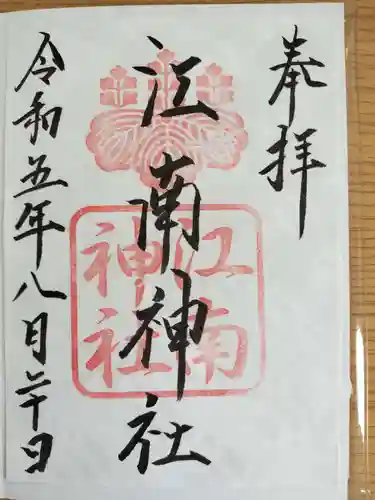 奉拝
江南神社
江南
神社
令和五年八月二十日